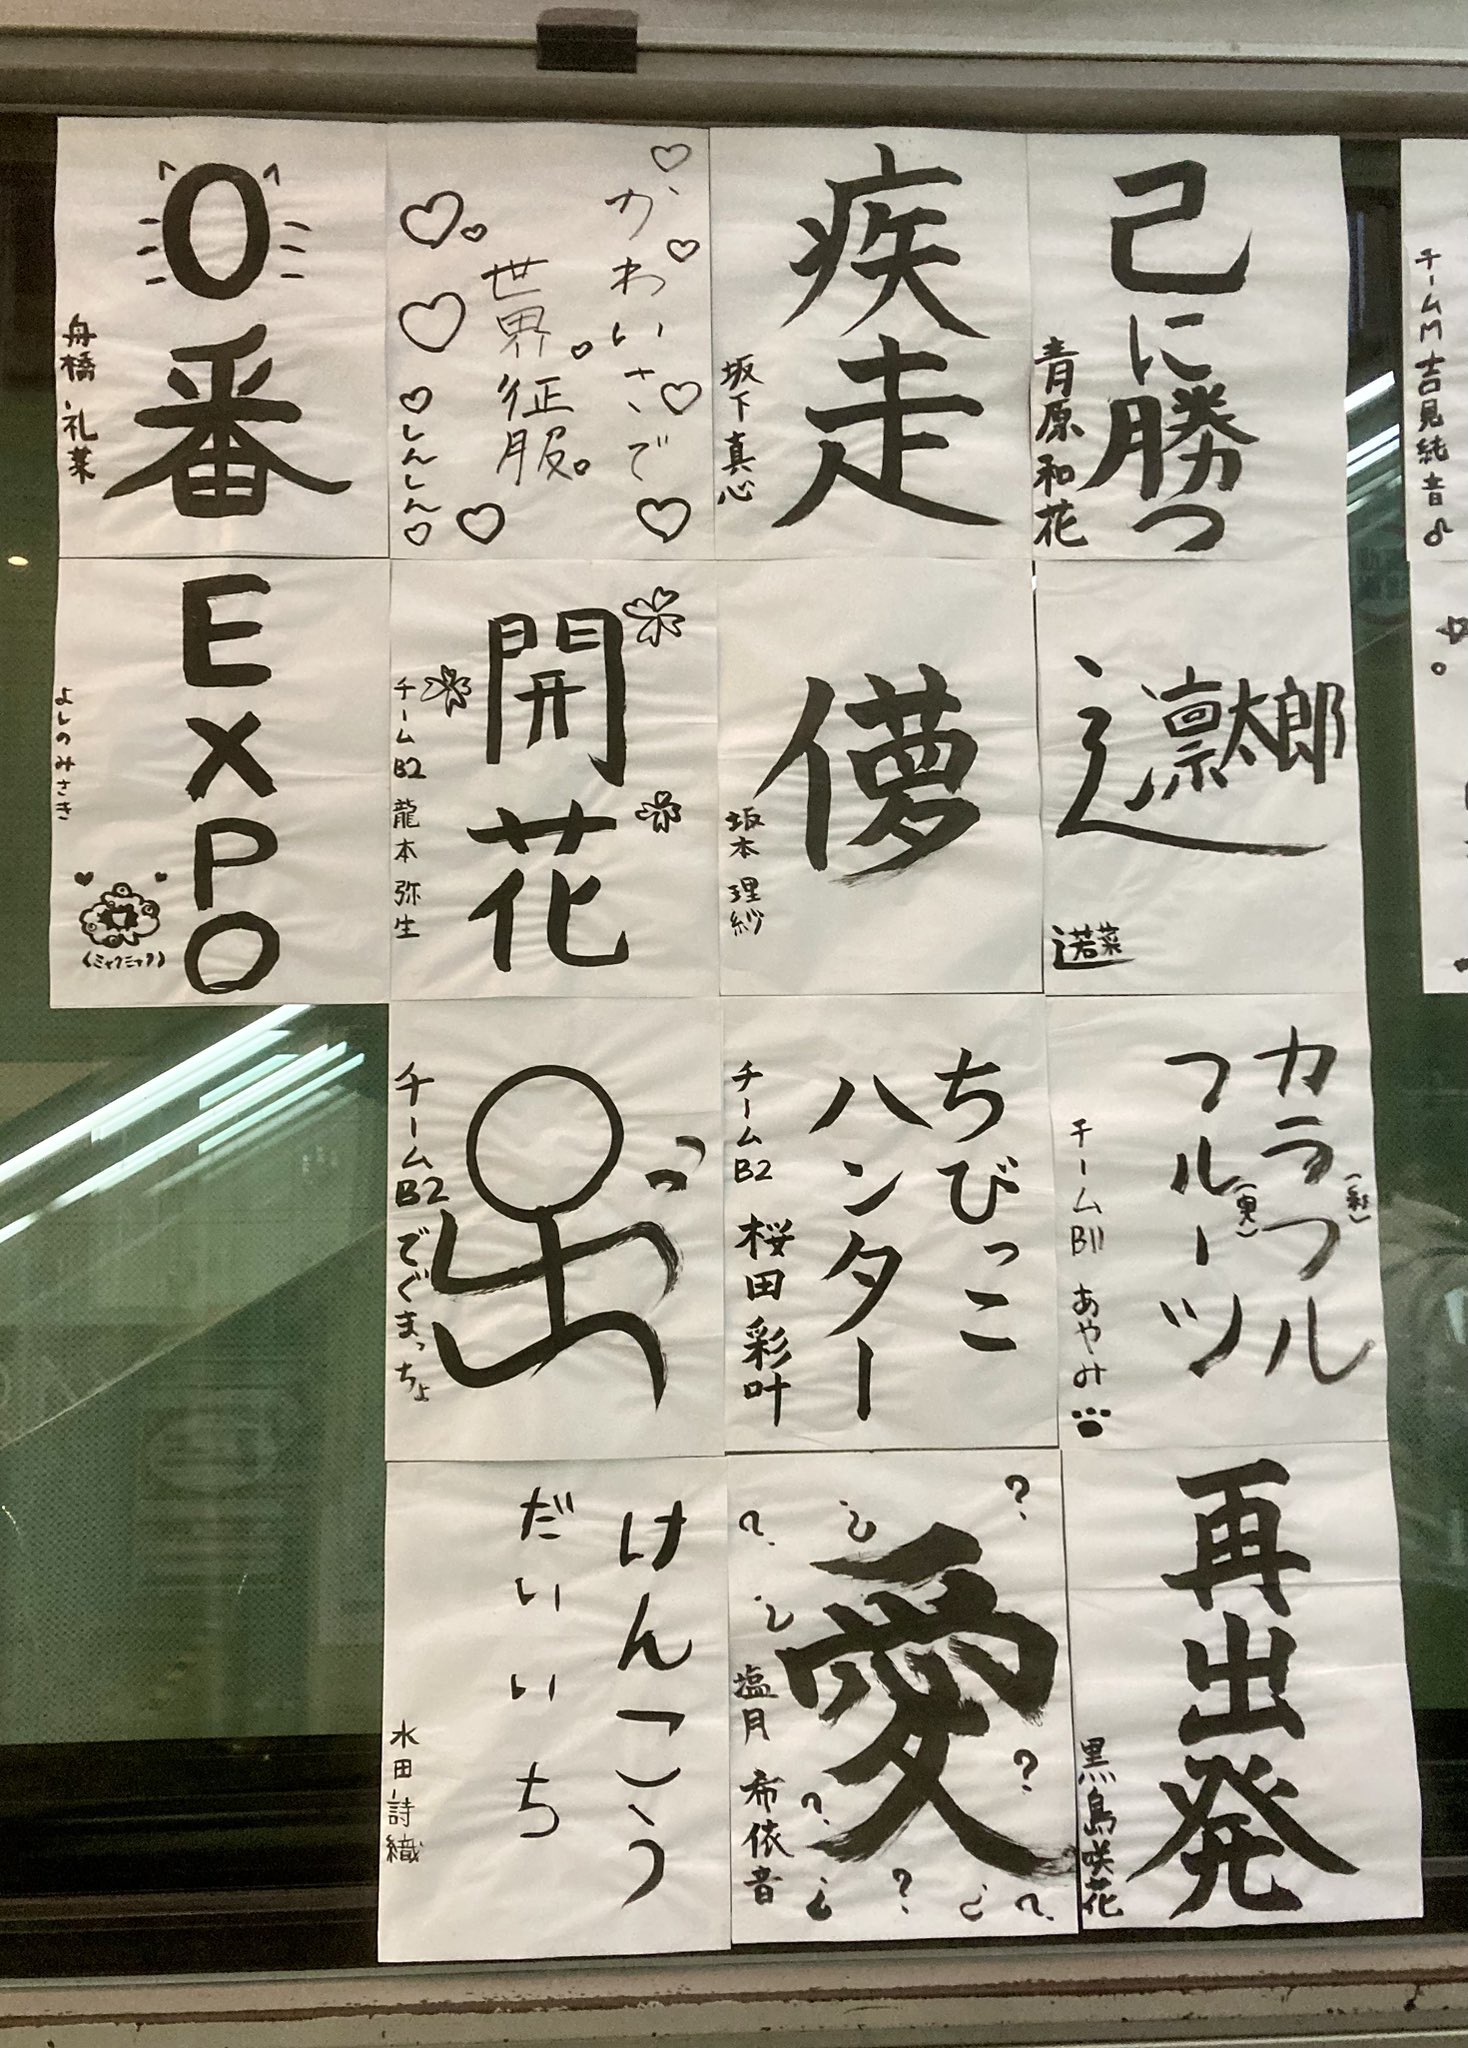 己に勝つ
青原和花
疾走
坂下真心
かわいさで
世界征服
しんしん
0番
舟橋礼菜
凛太郎
若菜
儚
坂本理紗
開花
チームB2 龍本弥生
EXPO
よしのみさき
(ミャクミャク)
カラフル
(彩)
フルーツ
(実)
チームBII あやみ
ちびっこ
ハンター
チームB2 桜田彩叶
チームB2 でぐまっちょ
再出発
黒島咲花
愛
? ? ? ? ? ? ? ? ? ?
塩月希依音
けんこう
だいいち
水田詩織
チームM 吉見純音